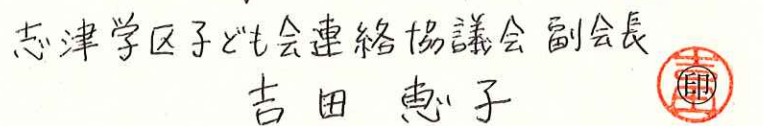 志津学区子ども会連絡協議会 副会長
吉田 恵子 ㊞